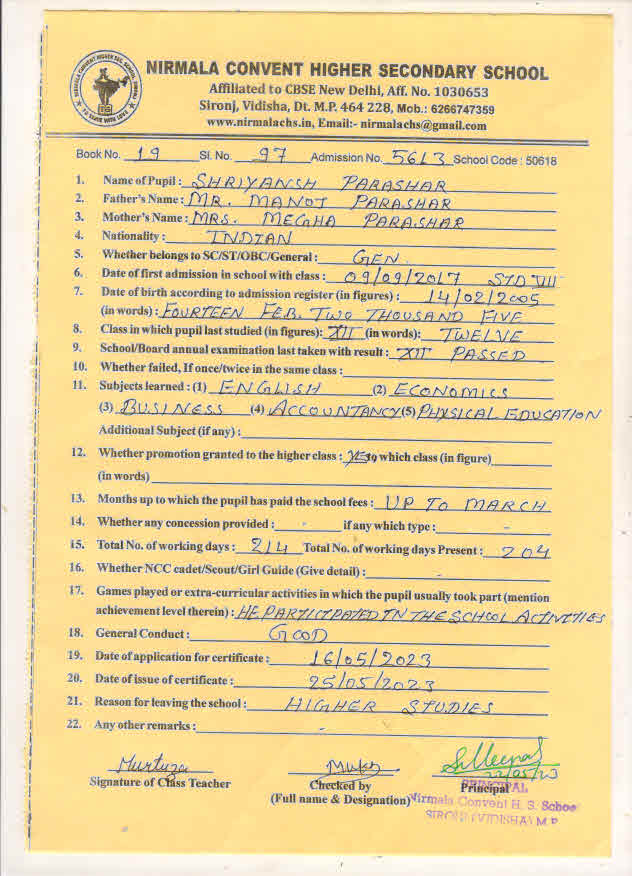 NIRMALA CONVENT HIGHER SECONDARY SCHOOL
Affiliated to CBSE New Delhi, Aff. No. 1030653
Sironj, Vidisha, Dt. M.P. 464 228, Mob.: 6266747359
www.nirmalachs.in, Email:- nirmalachs@gmail.com
Book No. 19 Sl. No. 97 Admission No. 5613 School Code : 50618
1. Name of Pupil : SHRIYANSH PARASHAR
2. Father's Name : MR. MANOJ PARASHAR
3. Mother's Name : MRS. MEGHA PARASHAR
4. Nationality : INDIAN
5. Whether belongs to SC/ST/OBC/General : GEN.
6. Date of first admission in school with class : 09/09/2017 STD VII
7. Date of birth according to admission register (in figures) : 14/02/2005
(in words) : FOURTEEN FEB. TWO THOUSAND FIVE
8. Class in which pupil last studied (in figures): XII (in words): TWELVE
9. School/Board annual examination last taken with result : XII PASSED
10. Whether failed, If once/twice in the same class :
11. Subjects learned : (1) ENGLISH (2) ECONOMICS
(3) BUSINESS (4) ACCOUNTANCY (5) PHYSICAL EDUCATION
Additional Subject (if any) :
12. Whether promotion granted to the higher class : YES, which class (in figure)
(in words)
13. Months up to which the pupil has paid the school fees : UP TO MARCH
14. Whether any concession provided : - if any which type : -
15. Total No. of working days : 214 Total No. of working days Present : 204
16. Whether NCC cadet/Scout/Girl Guide (Give detail) : -
17. Games played or extra-curricular activities in which the pupil usually took part (mention
achievement level therein) : HE PARTICIPATED IN THE SCHOOL ACTIVITIES
18. General Conduct : GOOD
19. Date of application for certificate : 16/05/2023
20. Date of issue of certificate : 25/05/2023
21. Reason for leaving the school : HIGHER STUDIES
22. Any other remarks : -
Murtuza
22/05/23
Signature of Class Teacher Checked by Principal
(Full name & Designation)
PRINCIPAL
Nirmala Convent H. S. Schoo
SIRONJ (VIDISHA) M.P.